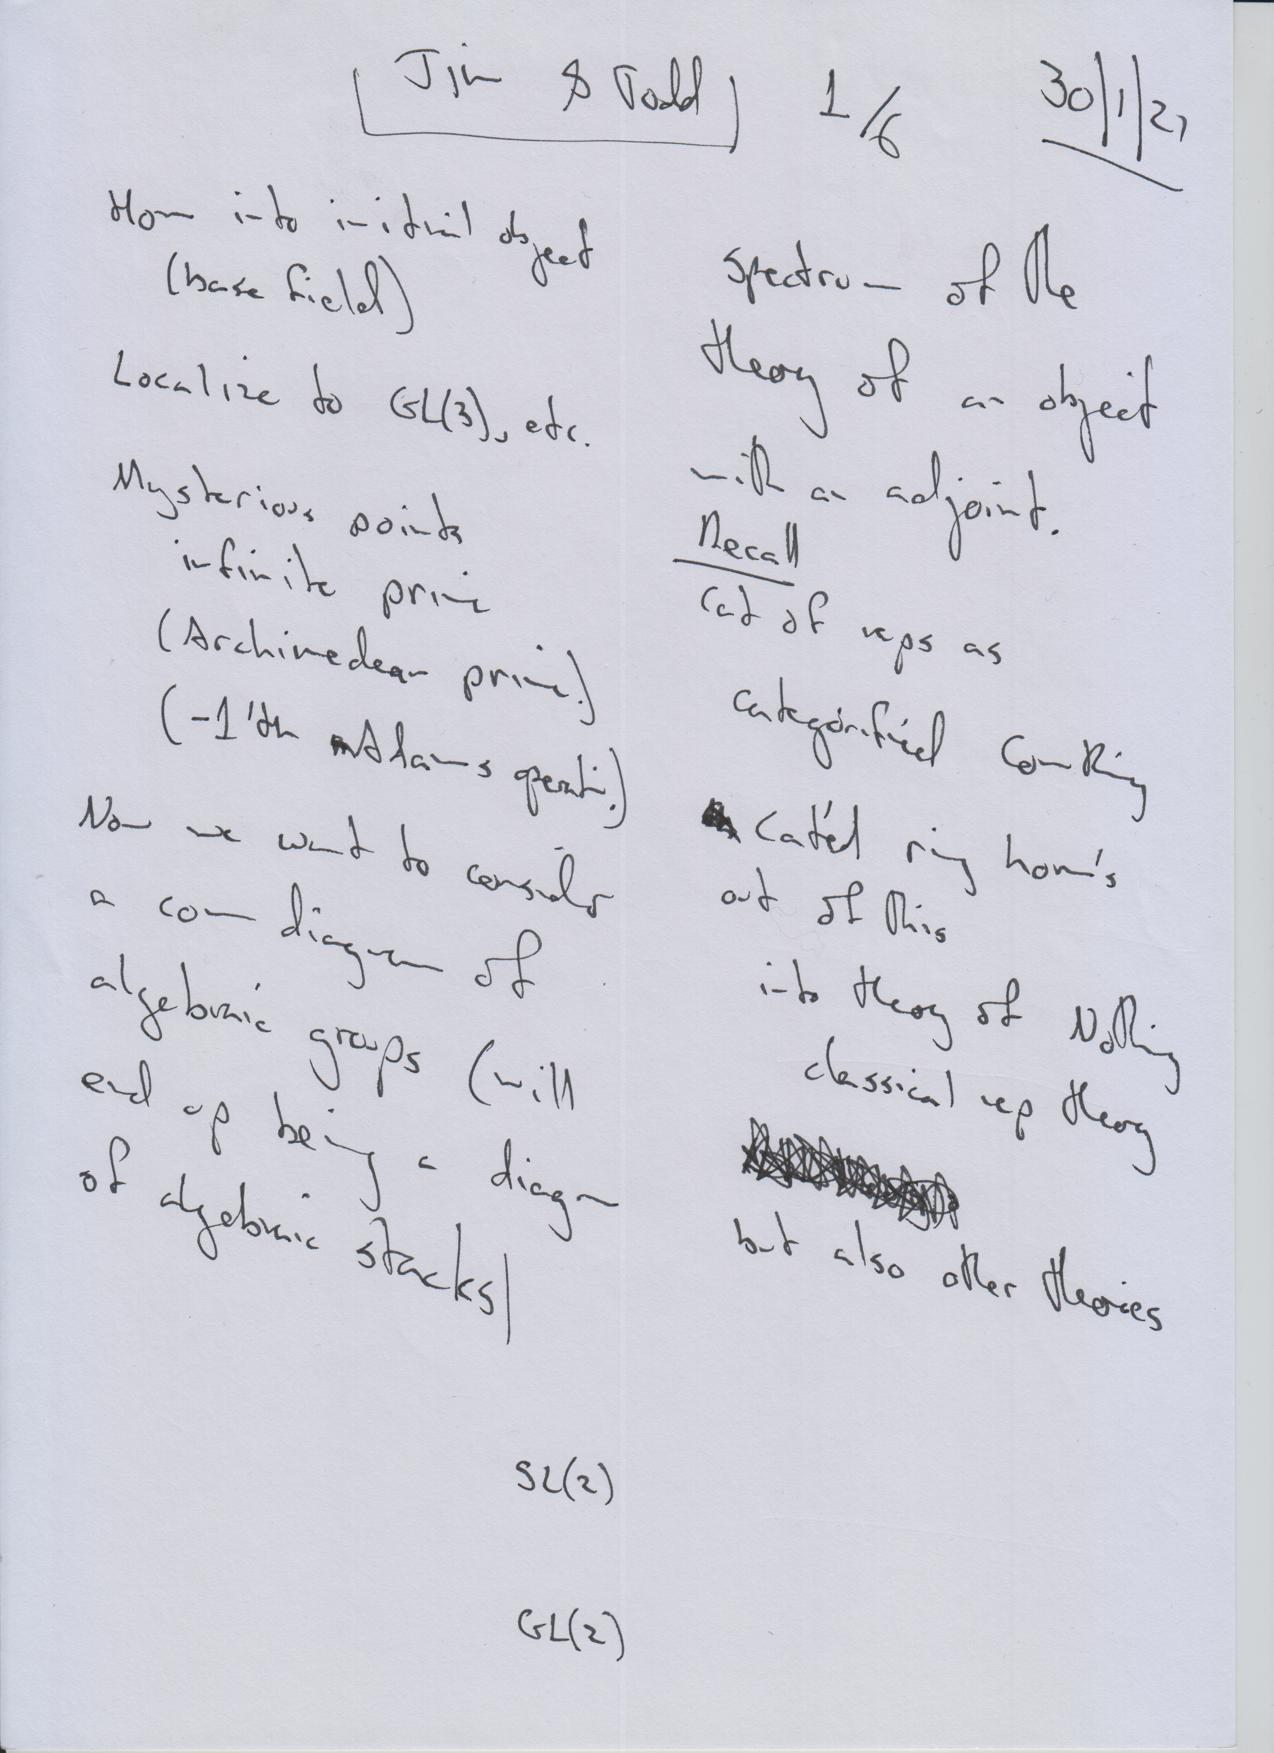 Jim & Todd 1/6 30/1/21
Hom into initial object
(base field)
Localize to GL(3), etc.
Mysterious points
infinite prime
(Archimedean prime)
(-1'th Adams operati.)
Now we want to consider
a com diagram of
algebraic groups (will
end up being a diagram
of algebraic stacks)
spectrum of the
theory of an object
with an adjoint.
Recall
Cat of reps as
categorified com Ring
Cat'ed ring hom's
out of this
into theory of Nothing
classical rep theory
but also other theories
SL(2)
GL(2)